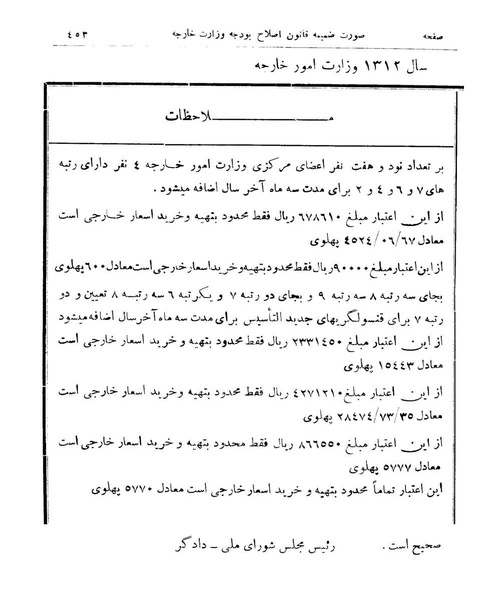 صفحه صورت ضمیمه قانون اصلاح بودجه وزارت خارجه ٤٥٣
سال ١٣١٢ وزارت امور خارجه
ملاحظات
بر تعداد نود و هفت نفر اعضای مرکزی وزارت امور خارجه ٤ نفر دارای رتبه
های ٧ و ٦ و ٤ و ٢ برای مدت سه ماه آخر سال اضافه میشود .
از این اعتبار مبلغ ٦٧٨٦١٠ ریال فقط محدود بتهیه وخرید اسعار خارجی است
معادل ٤٥٢٤/٠٦/٦٧ پهلوی
از این اعتبار مبلغ ٩٠٠٠٠ ریال فقط محدود بتهیه و خرید اسعار خارجی است معادل ٦٠٠ پهلوی
بجای سه رتبه ٨ سه رتبه ٩ و بجای دو رتبه ٧ و یکرتبه ٦ سه رتبه ٨ تعیین و دو
رتبه ٧ برای قنسولگریهای جدید التأسیس برای مدت سه ماه آخر سال اضافه میشود
از این اعتبار مبلغ ٢٣٣١٤٥٠ ریال فقط محدود بتهیه و خرید اسعار خارجی است
معادل ١٥٤٤٣ پهلوی
از این اعتبار مبلغ ٤٢٧١٢١٠ ریال فقط محدود بتهیه وخرید اسعار خارجی است
معادل ٢٨٤٧٤/٧٣/٣٥ پهلوی
از این اعتبار مبلغ ٨٦٦٥٥٠ ریال فقط محدود بتهیه و خرید اسعار خارجی است
معادل ٥٧٧٧ پهلوی
این اعتبار تماماً محدود بتهیه و خرید اسعار خارجی است معادل ٥٧٧٠ پهلوی
صحیح است . رئیس مجلس شورای ملی ـ دادگر